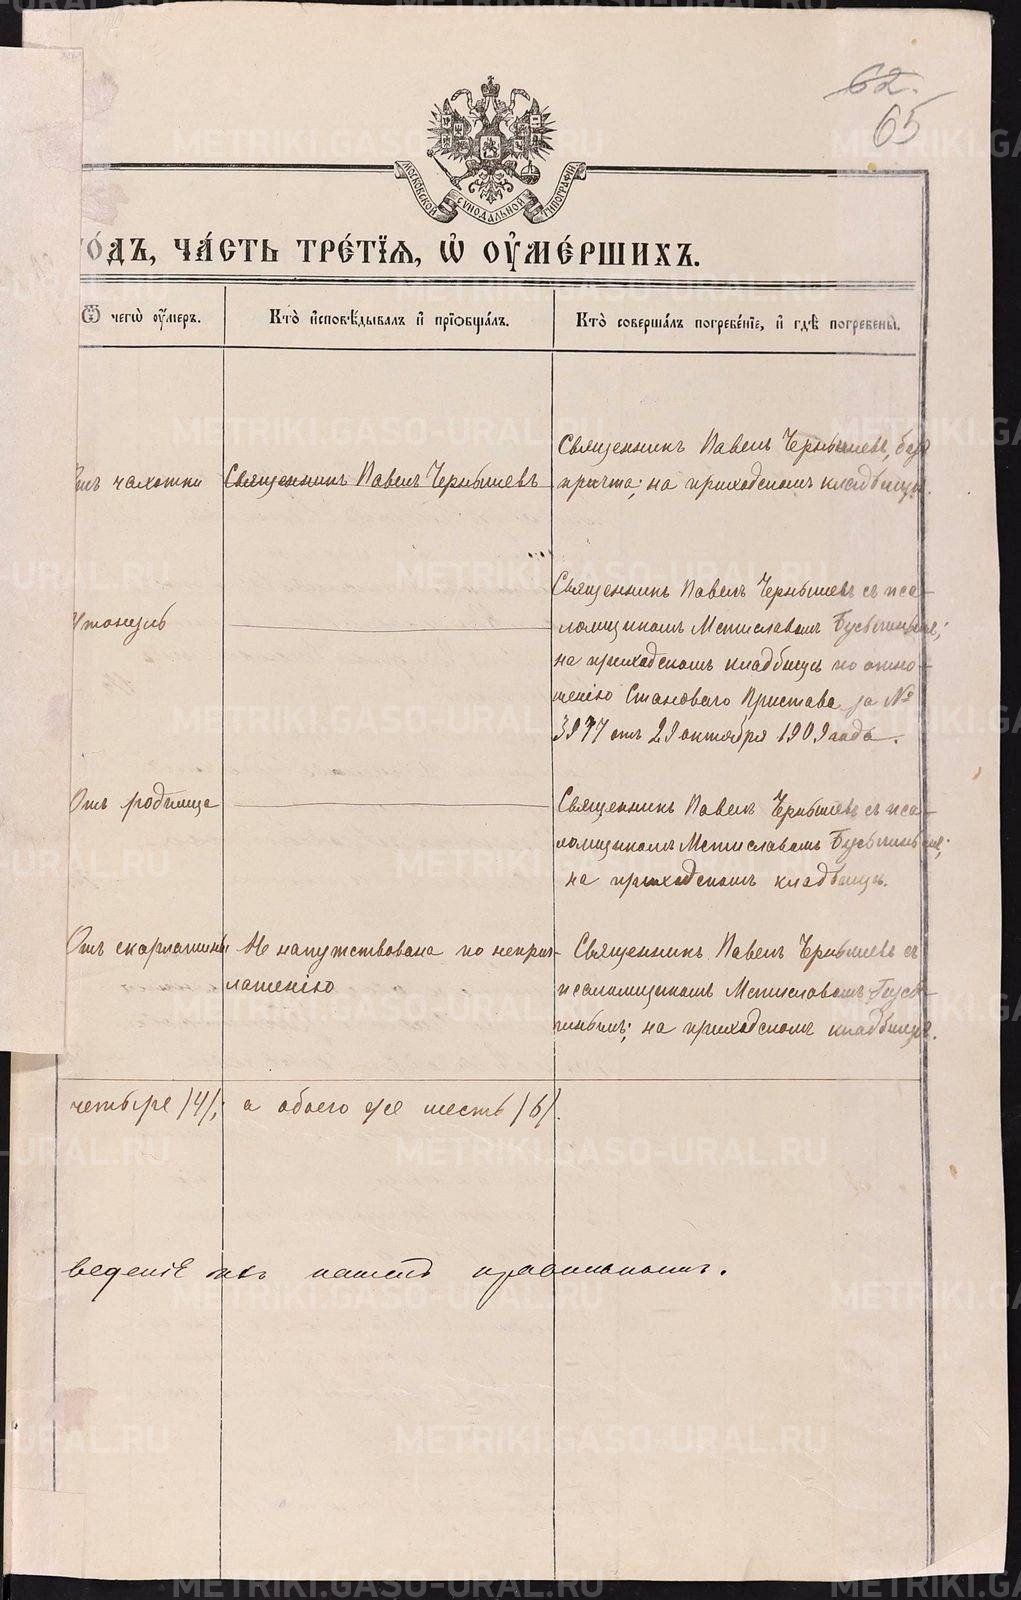 62.
65
МОСКОВСКОЙ СѴНОДАЛЬНОЙ ТИПОГРАФІИ
го́дъ, ча́сть тре́тїѧ, ѡ҆ оу҆ме́ршихъ.
Ѿ чегѡ̀ оу҆́меръ.
Кто̀ и҆сповѣ́дывалъ и҆ прїѡбща́лъ.
Кто̀ соверша́лъ погребе́нїе, и҆ гдѣ̀ погребены̀.
Отъ чахотки
Священникъ Павелъ Чернышевъ
Священникъ Павелъ Чернышевъ, безъ
причта; на приходскомъ кладбищѣ.
Утонулъ
Священникъ Павелъ Чернышевъ съ пса-
ломщикомъ Мстиславомъ
на приходскомъ кладбищѣ по отно-
шенію Становаго Пристава за №
3977 отъ 29 октября 1909 года.
Отъ родимца
Священникъ Павелъ Чернышевъ съ пса-
ломщикомъ Мстиславомъ
на приходскомъ кладбищѣ.
Отъ скарлатины
Не напутствована по непригла-
шенію
Священникъ Павелъ Чернышевъ съ
псаломщикомъ Мстиславомъ
на приходскомъ кладбищѣ.
четыре /4/; а обоего же шесть /6/.
веденіе ихъ нашелъ правильнымъ.
METRIKI.GASO-URAL.RU